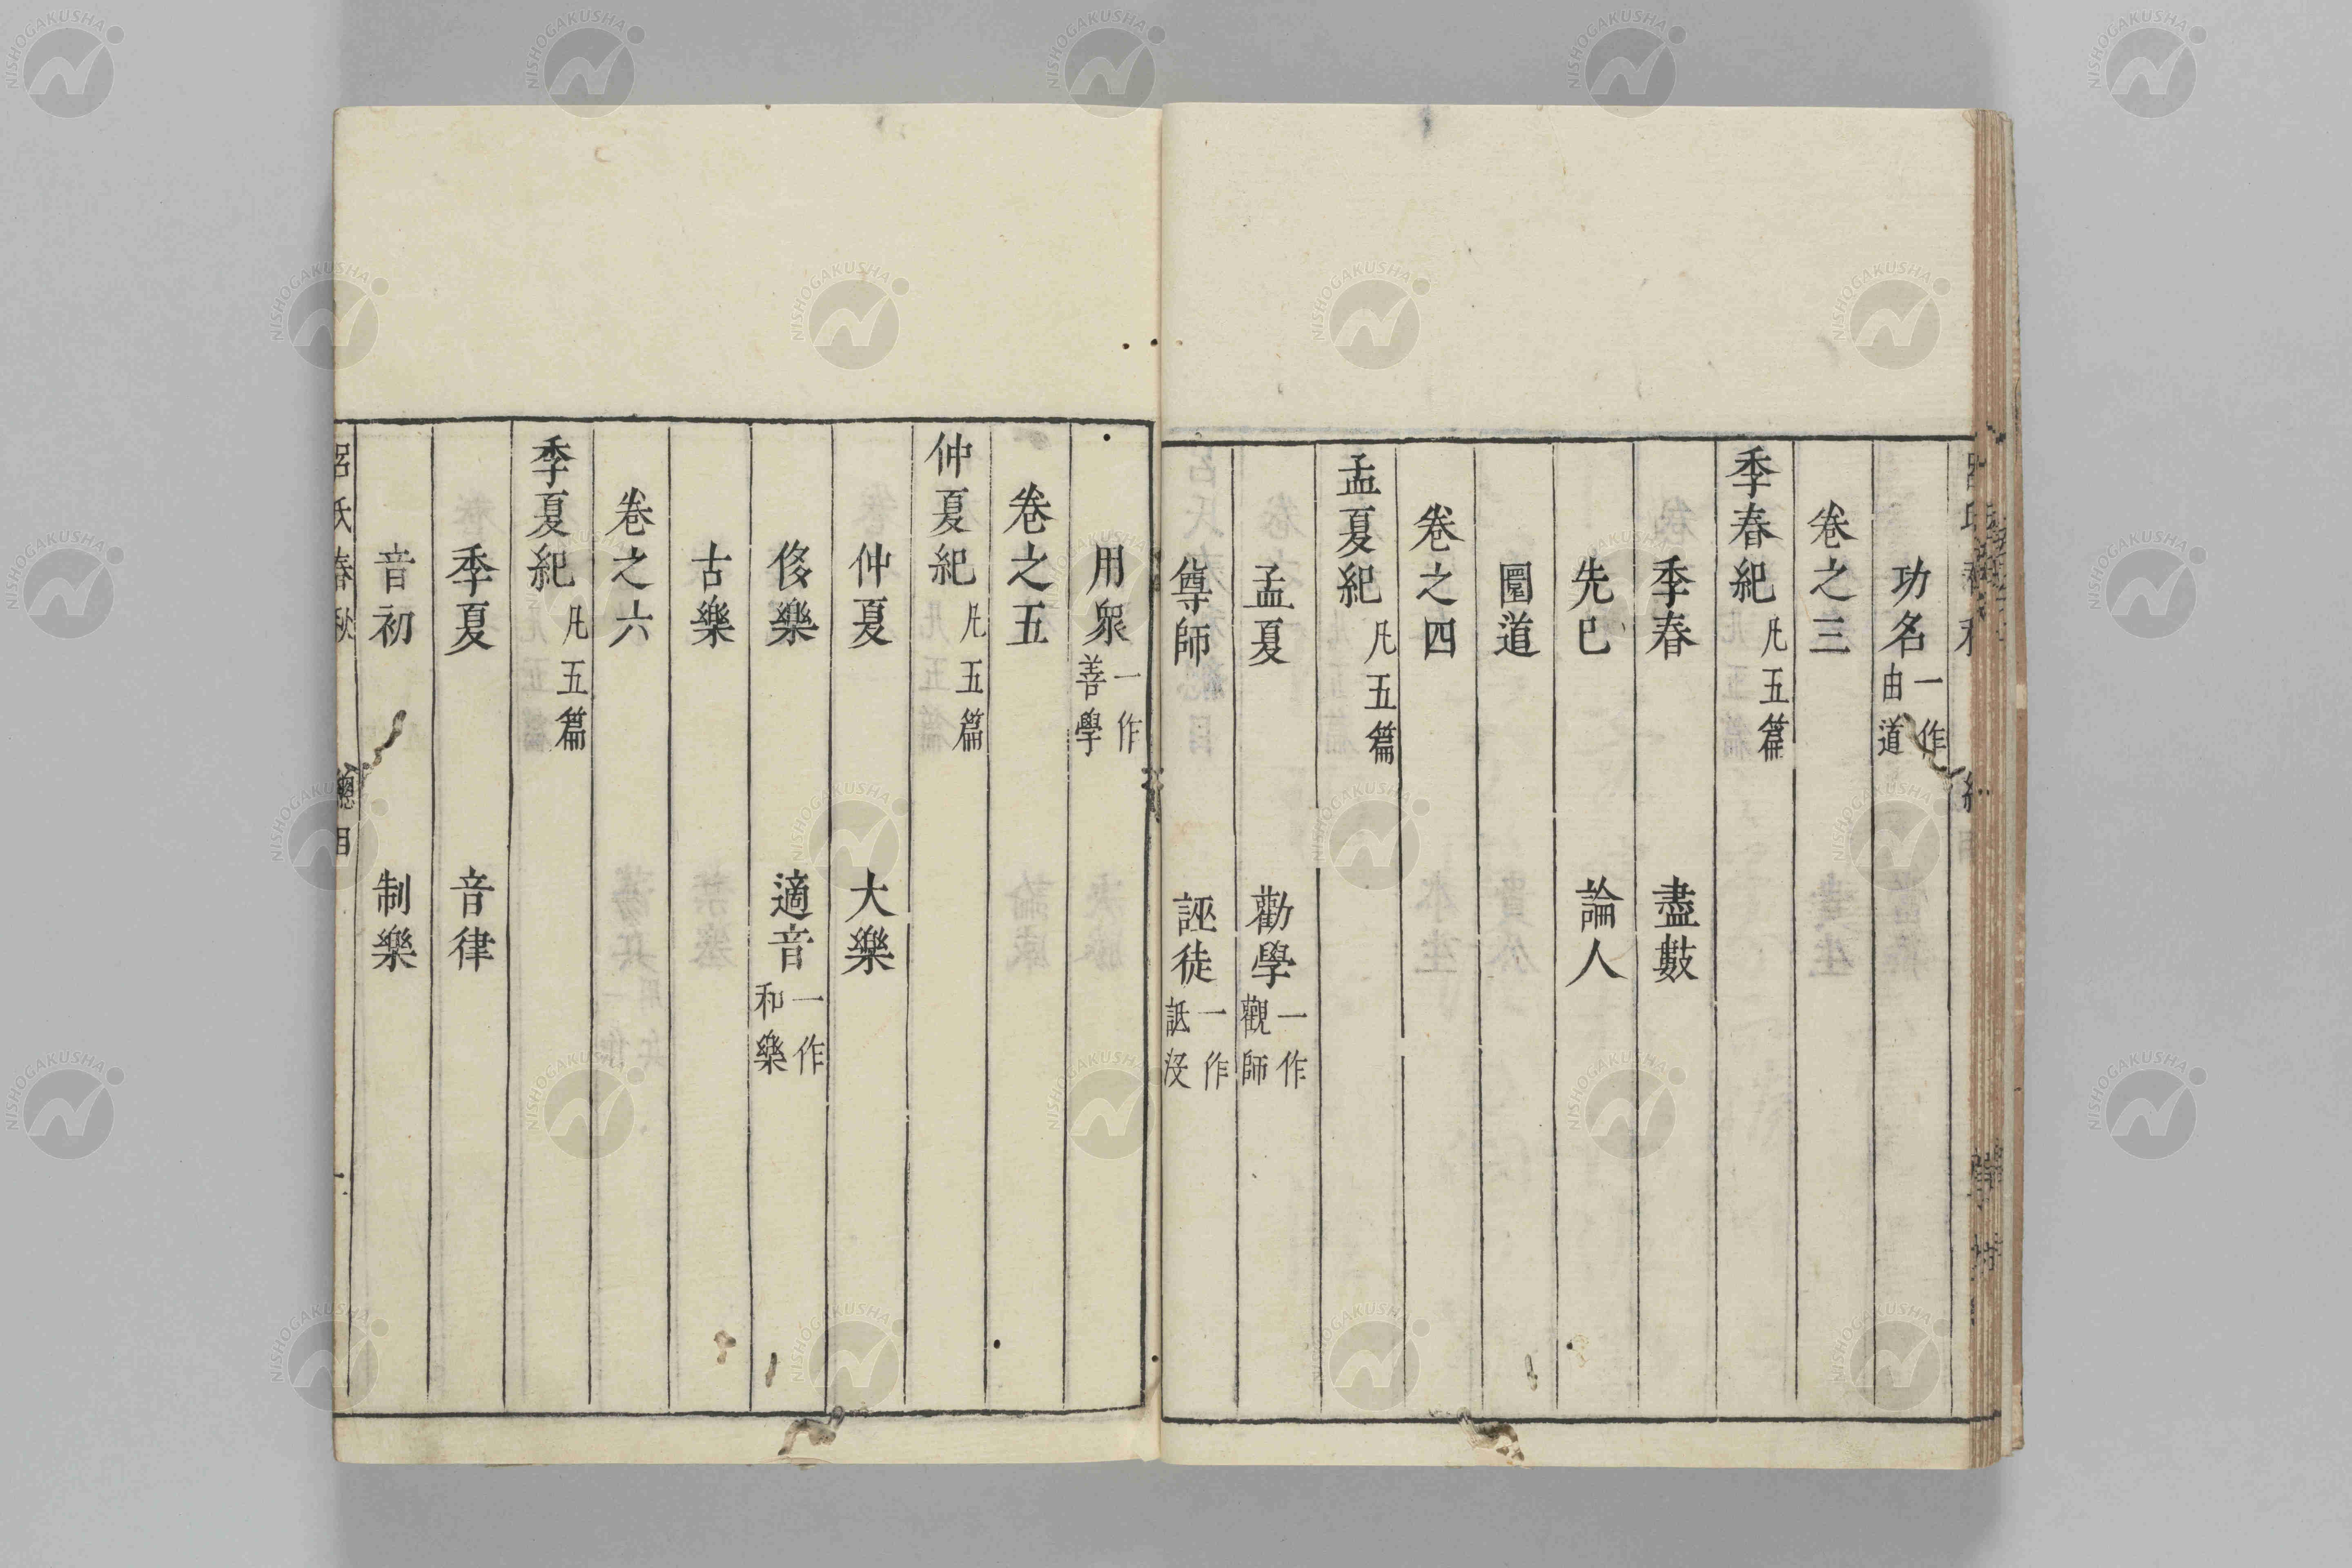 功名一作由道
卷之三
季春紀凡五篇
季春 盡數
先己 論人
圜道
卷之四
孟夏紀凡五篇
孟夏 勸學一作觀師
尊師 誣徒一作詆役
用衆一作善學
卷之五
仲夏紀凡五篇
仲夏 大樂
侈樂 適音一作和樂
古樂
卷之六
季夏紀凡五篇
季夏 音律
音初 制樂
呂氏春秋 總目
NISHOGAKUSHA